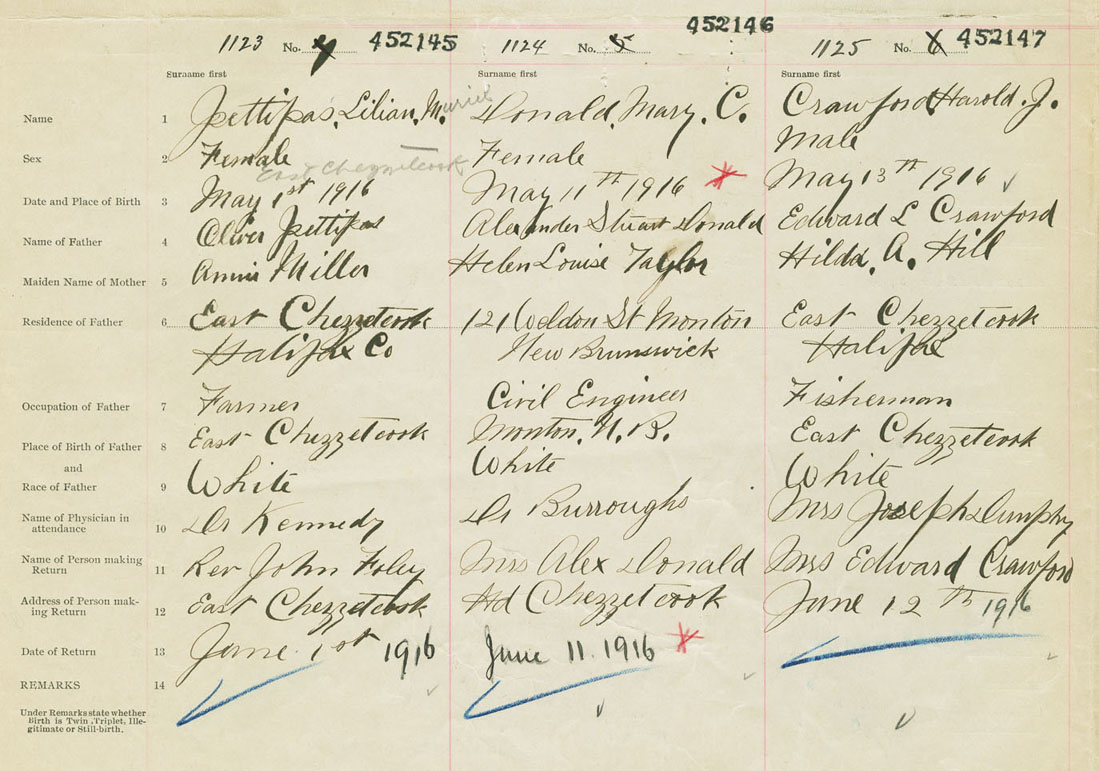 1123 No. 4 452145 1124 No. 5 452146 1125 No. 6 452147
Surname first Surname first Surname first
Name 1 Pettipas, Lilian, M. uriel Donald, Mary, C. Crawford, Harold, J.
Sex 2 Female Female Male
East Chezzetcook
Date and Place of Birth 3 May 1st 1916 May 11th 1916 May 13th 1916
Name of Father 4 Oliver Pettipas Alexander Stuart Donald Edward L Crawford
Maiden Name of Mother 5 Annie Miller Helen Louise Taylor Hilda, A. Hill
Residence of Father 6 East Chezzetcook 121 Weldon St Monton East Chezzetcook
Halifax Co New Brunswick Halifax
Occupation of Father 7 Farmer Civil Engineer Fisherman
Place of Birth of Father 8 East Chezzetcook Monton, N. B. East Chezzetcook
and
Race of Father 9 White White White
Name of Physician in
attendance 10 Dr Kennedy Dr Burroughs Mrs Joseph Dunphy
Name of Person making
Return 11 Rev John Foley Mrs Alex Donald Mrs Edward Crawford
Address of Person mak-
ing Return 12 East Chezzetcook Hd Chezzetcook June 12th 1916
Date of Return 13 June 1st 1916 June 11. 1916
REMARKS 14
Under Remarks state whether
Birth is Twin, Triplet, Ille-
gitimate or Still-birth.